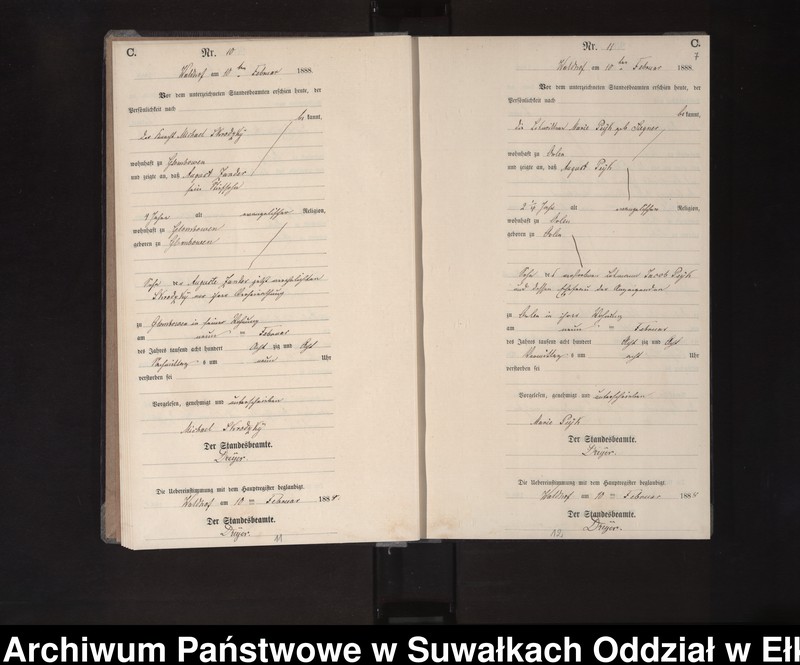 C.
Nr. 10
Waldhof am 10 ten Februar 1888.
Vor dem unterzeichneten Standesbeamten erschien heute, der
Persönlichkeit nach
be kannt,
der Knecht Michael Skrodzky
wohnhaft zu Glombowen
und zeigte an, daß August Zander
sein Stiefsohn
Jahre alt evangelischer Religion,
wohnhaft zu Glombowen
geboren zu Glombowen
Sohn der Auguste Zander jetzt verehelichten
Skrodzky vor ihrer Verheirathung
zu Glombowen in seiner Wohnung
am neun ten Februar
des Jahres tausend acht hundert Acht zig und Acht
Nachmittag s um neun Uhr
verstorben sei
Vorgelesen, genehmigt und unterschrieben
Michael Skrodzky
Der Standesbeamte.
Dreyer.
Die Uebereinstimmung mit dem Hauptregister beglaubigt.
Waldhof am 10 ten Februar 1888.
Der Standesbeamte.
Dreyer.
11
C.
7
Nr. 11
Waldhof am 10 ten Februar 1888.
Vor dem unterzeichneten Standesbeamten erschien heute, der
Persönlichkeit nach
be kannt,
die Marie geb.
wohnhaft zu
und zeigte an, daß August
2 Jahr alt evangelischer Religion,
wohnhaft zu
geboren zu
Sohn des verstorbenen Jacob
und dessen Ehefrau der Anzeigenden
zu in ihrer Wohnung
am neun ten Februar
des Jahres tausend acht hundert Acht zig und Acht
Vormittag s um acht Uhr
verstorben sei
Vorgelesen, genehmigt und unterschrieben
Marie
Der Standesbeamte.
Dreyer.
Die Uebereinstimmung mit dem Hauptregister beglaubigt.
Waldhof am 10 ten Februar 1888
Der Standesbeamte.
Dreyer.
12.
Archiwum Państwowe w Suwałkach Oddział w Ełk